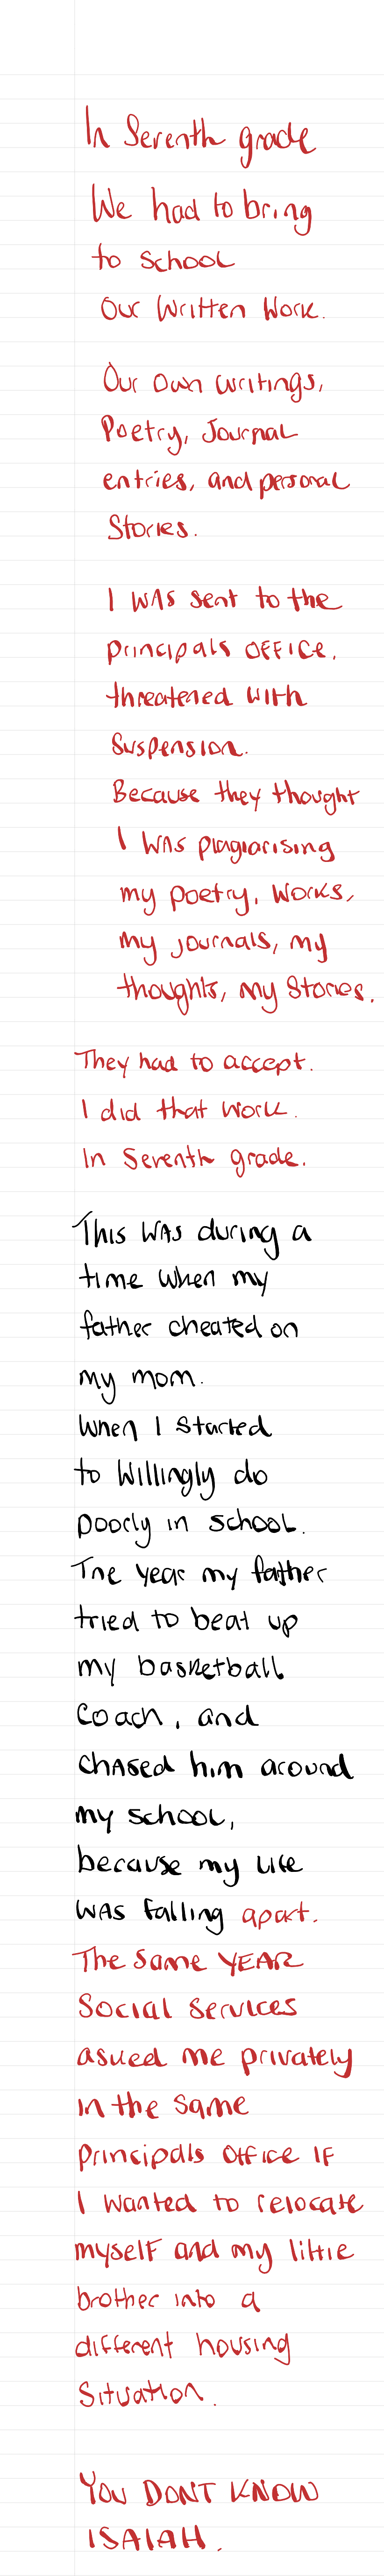 In Seventh grade
We had to bring
to School
Our Written Work.
Our Own writings,
Poetry, Journal
entries, and personal
Stories.
I WAS Sent to the
principals OFFICE.
threatened with
Suspension.
Because they thought
I WAS plagiarising
my poetry, works,
my journals, my
thoughts, my Stories.
They had to accept.
I did that work.
In Seventh grade.
This WAS during a
time when my
father cheated on
my mom.
When I Started
to Willingly do
poorly in school.
The year my father
tried to beat up
my basketball
Coach, and
chASed him around
my school,
because my life
WAS falling apart.
The Same YEAR
Social Services
asked me privately
in the same
principals office IF
I wanted to relocate
myself and my little
brother into a
different housing
Situation.
YOU DONT KNOW
ISAIAH.